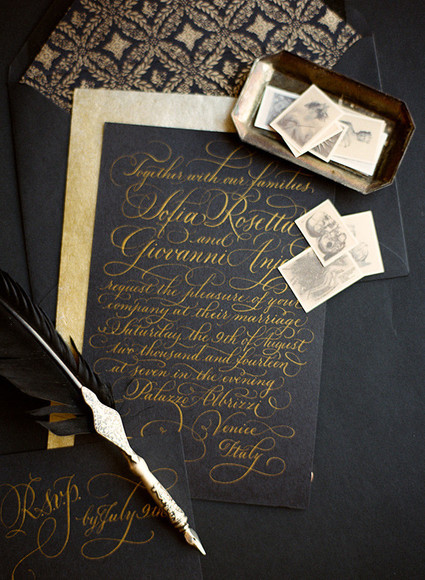 Together with our families,
Sofia Rosetta
and
Giovanni
request the pleasure of your
company at their marriage
Saturday, the 9th of August
two thousand and fourteen
at seven in the evening
Palazzo Albrizzi
Venice
Italy
R.s.v.p.
by July 9th